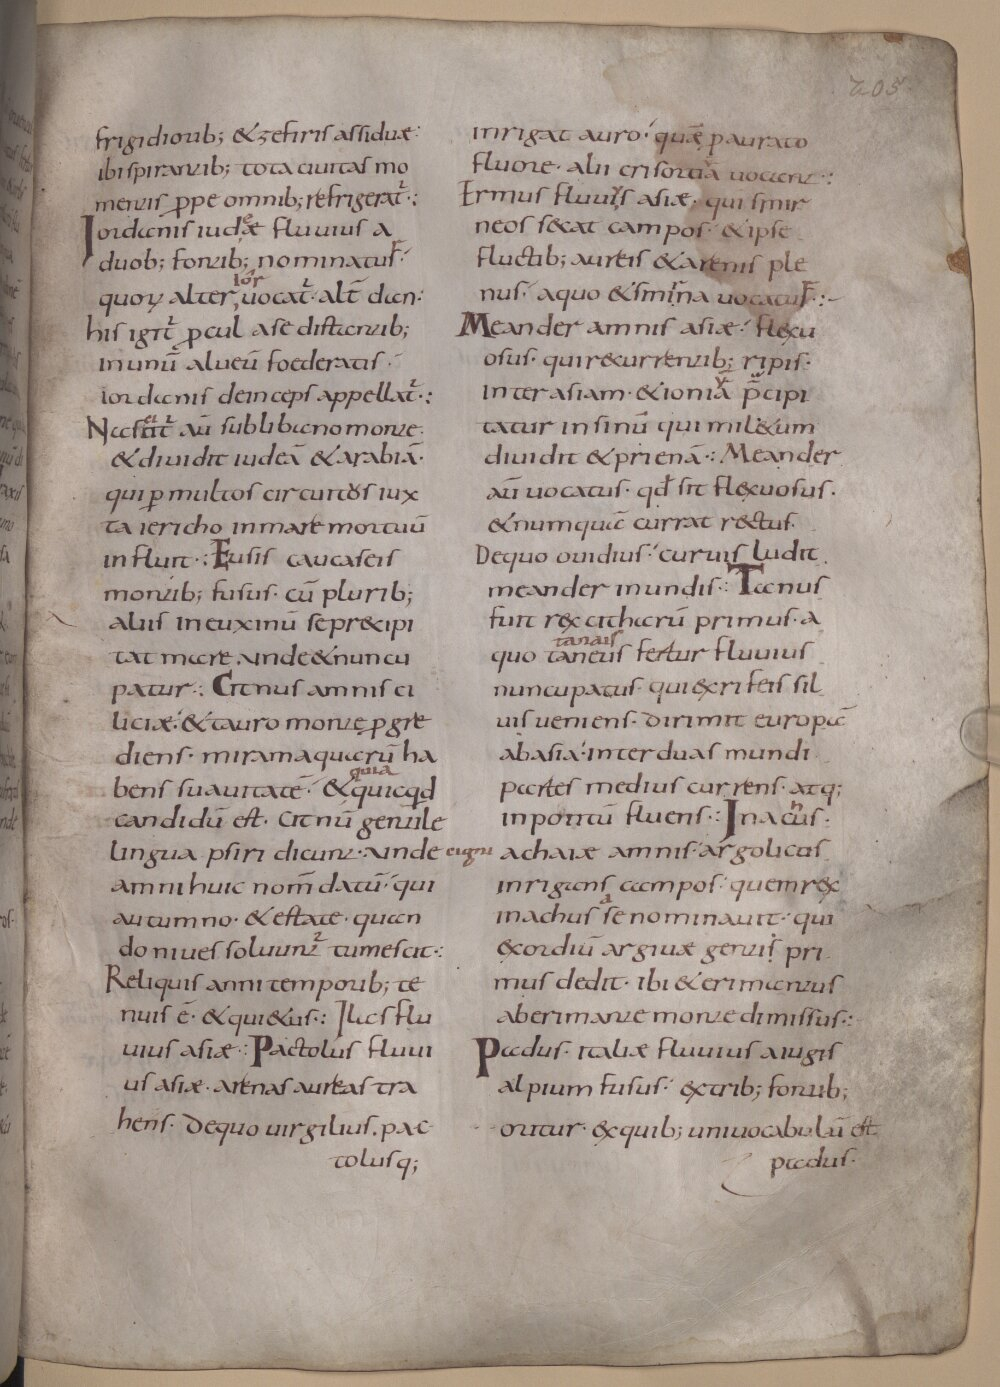 205
frigidiorib; & zefiris assiduæ·
ibi spirantib; tota ciuitas mo
mentis ꝓpe omnib; refrigerat̄·:
Iordanis iudęæ fluuius a
duob; fontib; nominatus·
ior
quoꝝ alter uocat̄· alt̄ dan·
his igit̄ ꝓcul a se distantib;
in unū alueū foederatis·
iordanis deinceps appellat̄·:
Nascit̄ aū sub libano monte·
& diuidit iudeā & arabiā·
qui ꝑ multos circuitus iux
ta iericho in mare mortuū
influit·: Fusis caucaseis
montib; fusus· cū plurib;
aliis in euxinū se precipi
tat mare· unde & nuncu
patur·: Citnus amnis ci
liciæ· & tauro monte ꝓgre
diens· miram aquarū ha
quia
bens suauitatē· & quicqd
candidū est· citnū gentile
lingua psiri dicunt· unde cigni
amni huic nom̄ datū· qui
autumno· & estate· quan
do niues soluunt̄ tumescit·:
Reliquis anni temporib; te
nuis ē· & qui&us·: Ilas flu
uius asiæ·: Pactolus fluui
us asiæ· arenas aureas tra
hens· De quo uirgilius· pac
tolusq;
inrigat auro· quāe p aurato
fluore· alii crisorrā uocant·:
Ermus fluuius asiæ· qui smir
neos secat campos· & ipse
fluctib; aureis & arenis ple
nus· a quo & smirna uocatus·:
Meander amnis asiæ· flexu
osus· qui recurrentib; ripis·
inter asiam· & ioniā p̄cipi
tatur in sinū qui mil&um
diuidit & prienā·: Meander
aū uocatus· qd sit flexuosus·
& numquā currat rectus·
De quo ouidius· curuis ludit
meander in undis·: Tanus
fuit rex citharū primus· a
tanais
quo taneus fertur fluuius
nuncupatus· qui ex rifeis sil
uis ueniens· dirimit europā
ab asia· inter duas mundi
partes medius currens· atq;
in pontū fluens·: Inachus·
achaiæ amnis· argolictis
inrigans campos· quem rex
inachus a se nominauit· qui
exordiū argiuæ gentis pri
mus dedit· ibi & erimantus
ab erimante monte dimissus·:
Padus· italiæ fluuius a iugis
alpium fusus· ex trib; fontib;
oritur· ex quib; uni uocabulū est
padus·